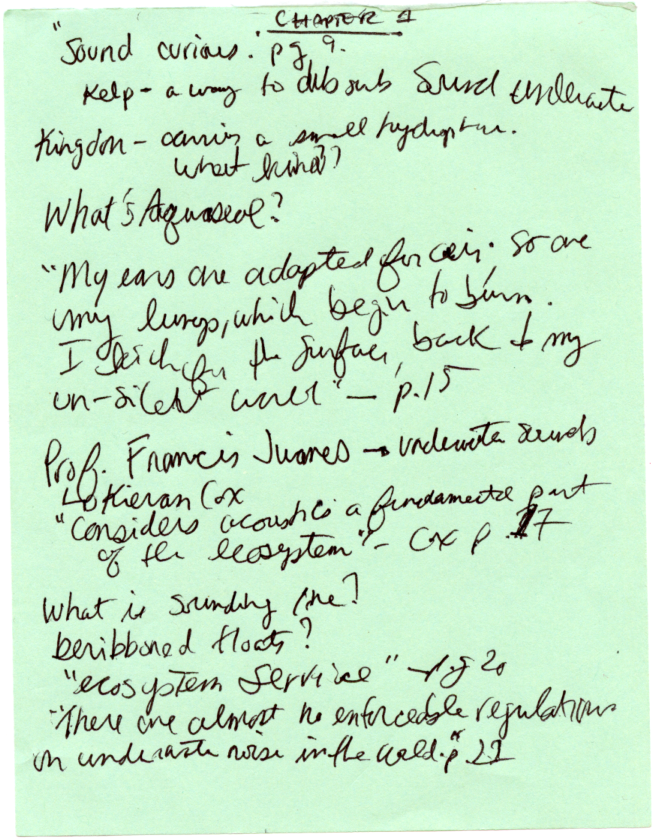 CHAPTER 1
"Sound curious." pg 9.
Kelp - a way to absorb Sound underwater
Kingdon - carries a small hydrophone.
What kind??
What's Aquaseal?
"My ears are adapted for air. So are
my lungs, which begin to burn.
I kick for the surface, back to my
un-silent world" - p.15
Prof. Francis Juanes → underwater sounds
↳ Kieran Cox
"Considers acoustics a fundamental part
of the ecosystem" - Cox p.17
What is sounding line?
beribboned floats?
"ecosystem Service" - pg 20
"There are almost no enforceable regulations
on underwater noise in the world." p.21